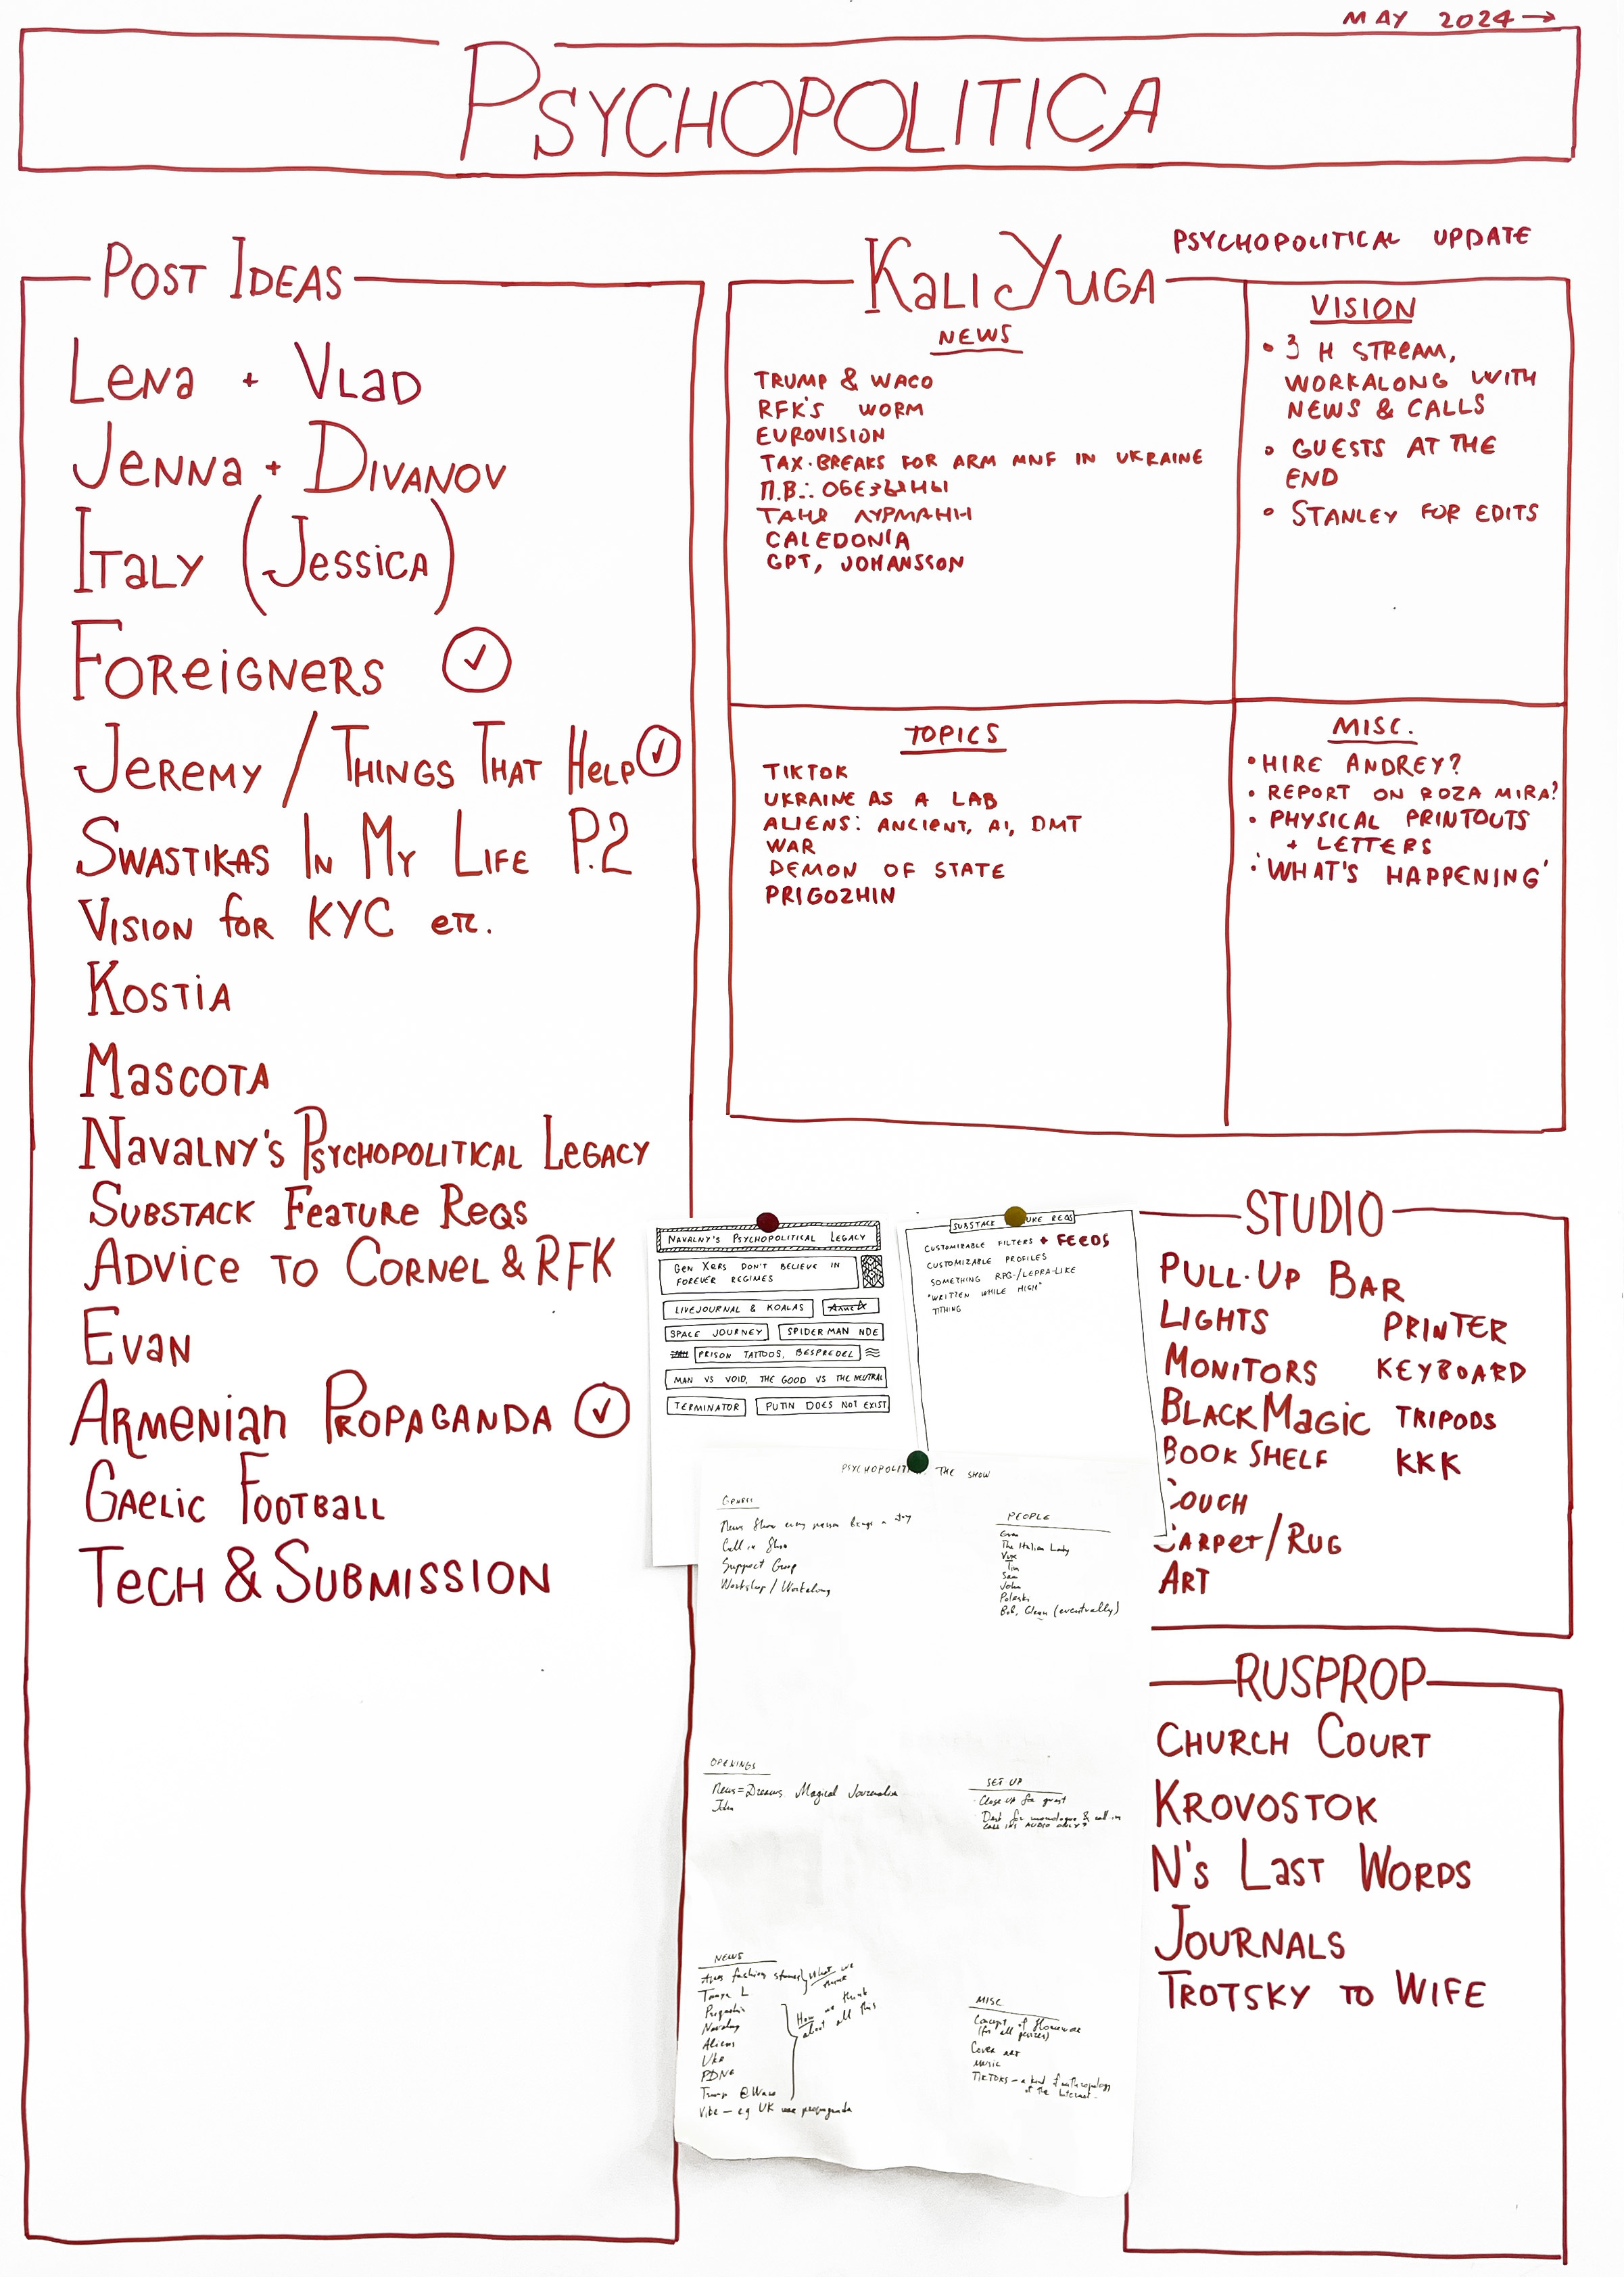 MAY 2024→
PSYCHOPOLITICA
POST IDEAS
LENA + VLAD
JENNA + DIVANOV
ITALY (JESSICA)
FOREIGNERS ✓
JEREMY / THINGS THAT HELP ✓
SWASTIKAS IN MY LIFE P.2
VISION FOR KYC ETC.
KOSTIA
MASCOTA
NAVALNY'S PSYCHOPOLITICAL LEGACY
SUBSTACK FEATURE REQS
ADVICE TO CORNEL & RFK
EVAN
ARMENIAN PROPAGANDA ✓
GAELIC FOOTBALL
TECH & SUBMISSION
KALI YUGA
PSYCHOPOLITICAL UPDATE
NEWS
TRUMP & WACO
RFK'S WORM
EUROVISION
TAX-BREAKS FOR ARM MNF IN UKRAINE
П.В.: ОБЕЗЬЯНЫ
ТАНЯ ЛУРМАНН
CALEDONIA
GPT, JOHANSSON
VISION
• 3 H STREAM,
WORKALONG WITH
NEWS & CALLS
• GUESTS AT THE
END
• STANLEY FOR EDITS
TOPICS
TIKTOK
UKRAINE AS A LAB
ALIENS: ANCIENT, AI, DMT
WAR
DEMON OF STATE
PRIGOZHIN
MISC.
• HIRE ANDREY?
• REPORT ON ROZA MIRA?
• PHYSICAL PRINTOUTS
+ LETTERS
• 'WHAT'S HAPPENING'
NAVALNY'S PSYCHOPOLITICAL LEGACY
GEN XERS DON'T BELIEVE IN
FOREVER REGIMES
LIVEJOURNAL & KOALAS
SPACE JOURNEY
SPIDERMAN NDE
PRISON TATTOOS, BESPREDEL
MAN VS VOID, THE GOOD VS THE NEUTRAL
TERMINATOR
PUTIN DOES NOT EXIST
SUBSTACK URE REQS
CUSTOMIZABLE FILTERS + FEEDS
CUSTOMIZABLE PROFILES
SOMETHING RPG-/LEPRA-LIKE
"WRITTEN WHILE HIGH"
TITHING
PSYCHOPOLITI THE SHOW
GENRES
News Show every person brings a
Call in Show
Support Group
Workshop / Workalong
PEOPLE
Evan
The Italian Lady
Tim
Sam
John
Bob, Glenn (eventually)
OPENINGS
News = Dreams, Magical Journalism
John
SET UP
Close up for guest
Desk for monologue & call in
CALL INS AUDIO ONLY?
NEWS
fashion stories What we
think
Tanya L
Prigozhin
Navalny
Aliens
Ukr
Trump @ Waco
Vibe – e.g. UK war propaganda
How we think
about all this
MISC
Concept of Homework
(for all parties)
Cover art
music
TIKTOKS – a kind of anthropology
of the Internet
STUDIO
PULL-UP BAR
LIGHTS PRINTER
MONITORS KEYBOARD
BLACKMAGIC TRIPODS
BOOKSHELF KKK
COUCH
CARPET/RUG
ART
RUSPROP
CHURCH COURT
KROVOSTOK
N'S LAST WORDS
JOURNALS
TROTSKY TO WIFE